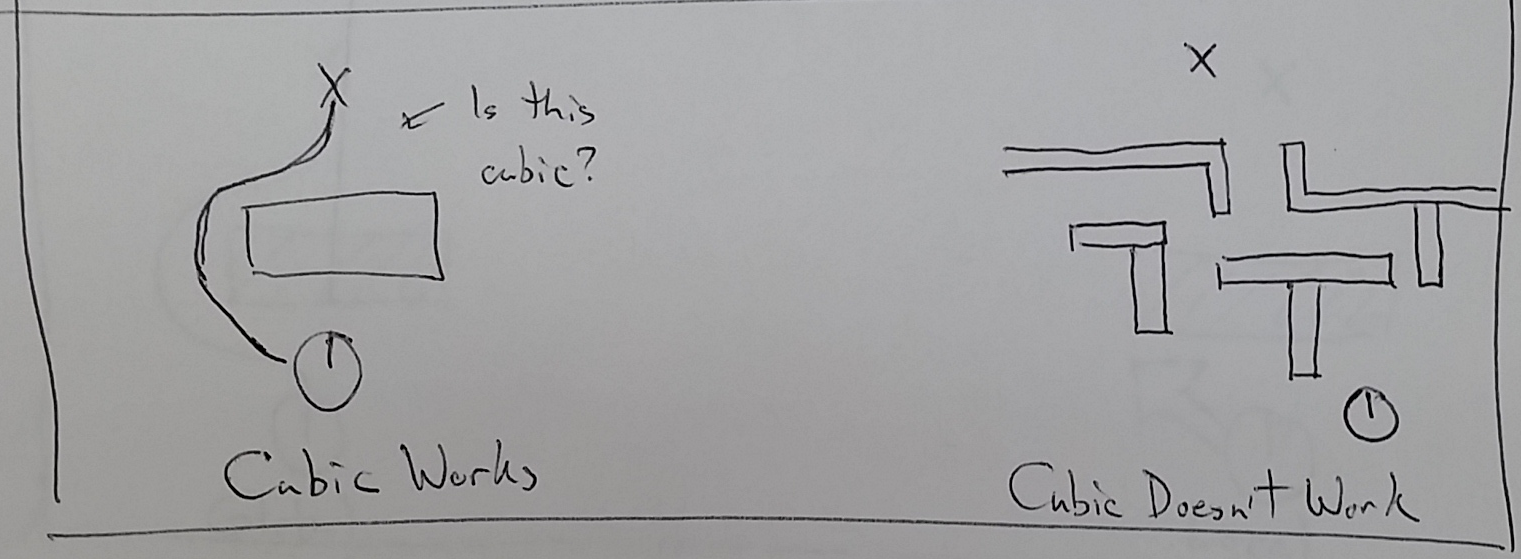 X
Is this
cubic?
Cubic Works
X
Cubic Doesn't Work